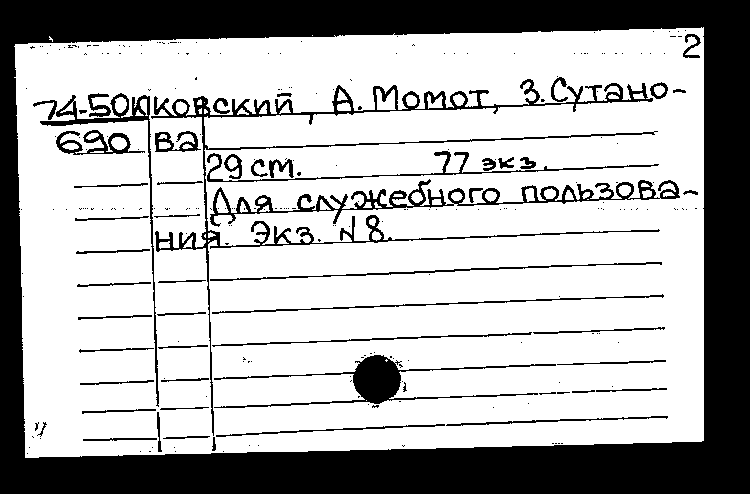 2
74-50к|ковский, А. Момот, З. Сутано-
690 ва
29 см. 77 экз.
Для служебного пользова-
ния. Экз. N8.